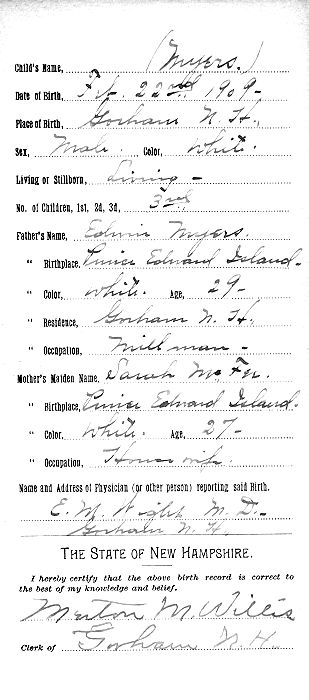 Child's Name, (Myers.)
Date of Birth, Feb. 22nd, 1909-
Place of Birth, Gorham N. H.,
Sex, Male. Color, White.
Living or Stillborn, Living -
No. of Children, 1st, 2d, 3d, 3rd
Father's Name, Edwin Myers.
" Birthplace, Prince Edward Island-
" Color, White. Age, 29-
" Residence, Gorham N. H.,
" Occupation, Mill man -
Mother's Maiden Name, Sarah Mc Fee.
" Birthplace, Prince Edward Island.
" Color, White. Age, 27-
" Occupation, Housewife.
Name and Address of Physician (or other person) reporting said Birth.
E. M. Wight M. D.-
Gorham N. H.
THE STATE OF NEW HAMPSHIRE.
I hereby certify that the above birth record is correct to
the best of my knowledge and belief.
Merton M. Willis
Clerk of Gorham N. H.